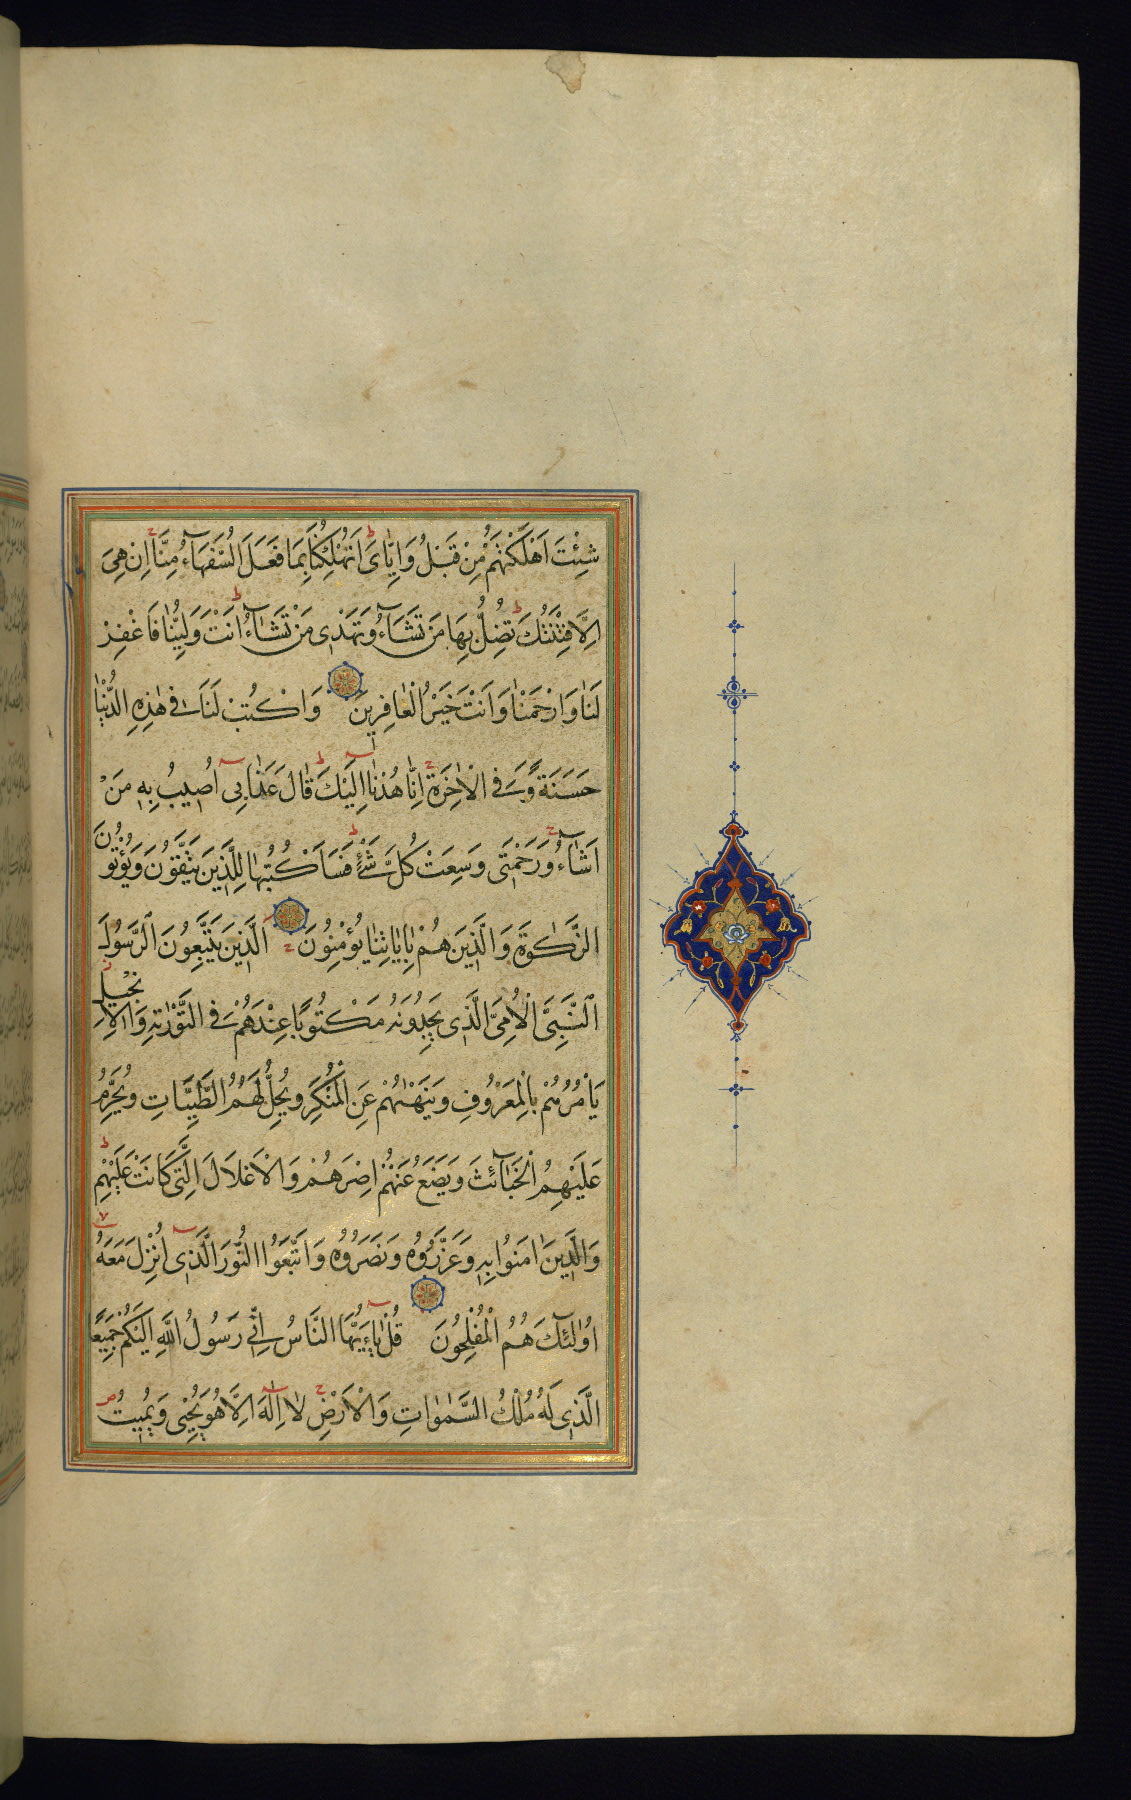 شِئْتَ اَهْلَكْتَهُمْ مِنْ قَبْلُ وَاِيَّايَ اَتُهْلِكُنَا بِمَا فَعَلَ السُّفَهَآءُ مِنَّا اِنْ هِيَ
اِلَّا فِتْنَتُكَ تُضِلُّ بِهَا مَنْ تَشَآءُ وَتَهْدِى مَنْ تَشَآءُ اَنْتَ وَلِيُّنَا فَاغْفِرْ
لَنَا وَارْحَمْنَا وَاَنْتَ خَيْرُ الْغَافِرِينَ وَاكْتُبْ لَنَا فِى هٰذِهِ الدُّنْيَا
حَسَنَةً وَفِى الْاٰخِرَةِ اِنَّا هُدْنَا اِلَيْكَ قَالَ عَذَابِى اُصِيبُ بِهِ مَنْ
اَشَآءُ وَرَحْمَتِى وَسِعَتْ كُلَّ شَىْءٍ فَسَاَكْتُبُهَا لِلَّذِينَ يَتَّقُونَ وَيُؤْتُونَ
الزَّكٰوةَ وَالَّذِينَ هُمْ بِاٰيَاتِنَا يُؤْمِنُونَ اَلَّذِينَ يَتَّبِعُونَ الرَّسُولَ
النَّبِىَّ الْاُمِّىَّ الَّذِى يَجِدُونَهُ مَكْتُوبًا عِنْدَهُمْ فِى التَّوْرٰيةِ وَالْاِنْجِيلِ
يَاْمُرُهُمْ بِالْمَعْرُوفِ وَيَنْهٰيهُمْ عَنِ الْمُنْكَرِ وَيُحِلُّ لَهُمُ الطَّيِّبَاتِ وَيُحَرِّمُ
عَلَيْهِمُ الْخَبَآئِثَ وَيَضَعُ عَنْهُمْ اِصْرَهُمْ وَالْاَغْلَالَ الَّتِى كَانَتْ عَلَيْهِمْ
فَالَّذِينَ اٰمَنُوا بِهِ وَعَزَّرُوهُ وَنَصَرُوهُ وَاتَّبَعُوا النُّورَ الَّذِى اُنْزِلَ مَعَهُ
اُولٰئِكَ هُمُ الْمُفْلِحُونَ قُلْ يَآءَيُّهَا النَّاسُ اِنِّى رَسُولُ اللّٰهِ اِلَيْكُمْ جَمِيعًا
الَّذِى لَهُ مُلْكُ السَّمٰوَاتِ وَالْاَرْضِ لَا اِلٰهَ اِلَّا هُوَ يُحْيِى وَيُمِيتُ